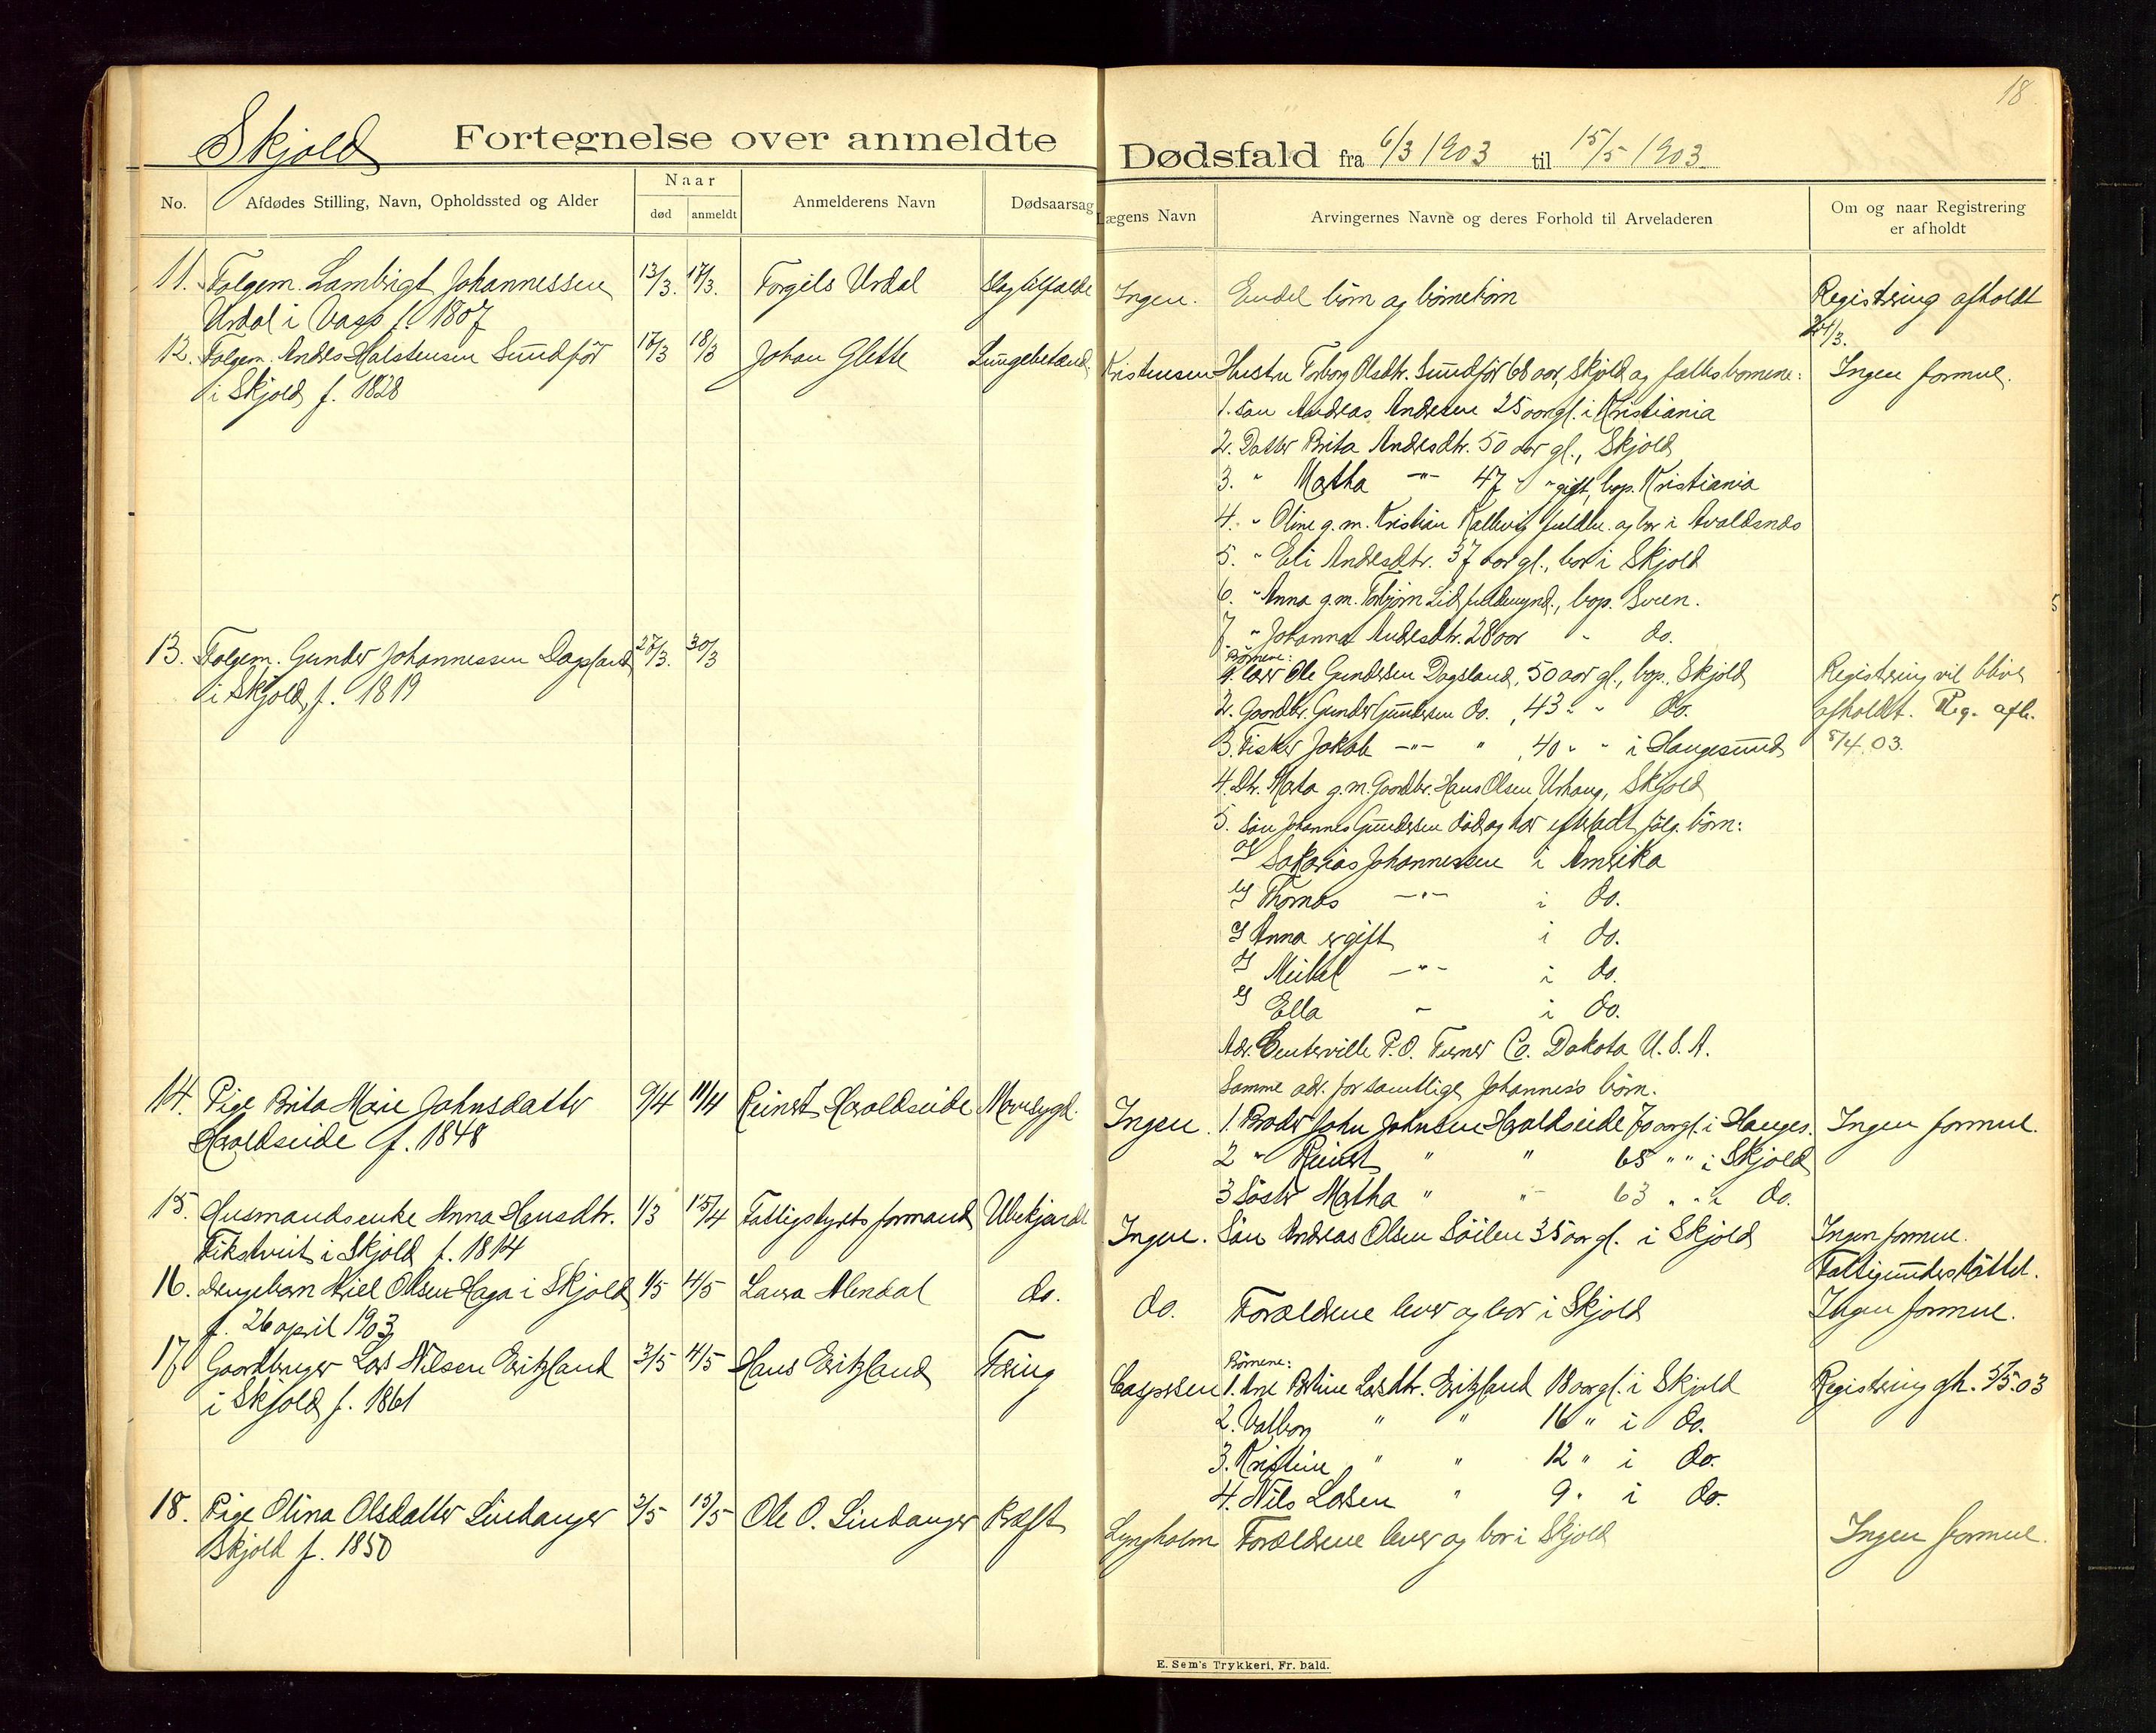 18
Skjold Fortegnelse over anmeldte Dødsfald fra 6/3 1903 til 15/5 1903
No. Afdødes Stilling, Navn, Opholdssted og Alder Naar død anmeldt Anmelderens Navn Dødsaarsag Lægens Navn Arvingernes Navne og deres Forhold til Arveladeren Om og naar Registrering er afholdt
11. Folgem. Lambrigt Johannessen 13/3. 17/3. Torgils Urdal Slagtilfælde Ingen. Endel børn og børnebørn Registrering afholdt
Urdal i Vats f. 1807 24/3.
12. Folgem. Andres Halstensen Sundfør 17/3 18/3 Johan Glette Lungebetænd. Kristensen Hustru Torborg Olsdtr. Sundfør 68 aar, Skjold og fælles børnene: Ingen formue.
i Skjold f. 1828
1. Søn Andreas Andresen 25 aar gl. i Kristiania
2. Datter Brita Andresdtr. 50 aar gl., Skjold
3. " Martha -"- 47 " " gift, bop. Kristiania
4. " Oline g.m. Kristian Kallevig fuldm. og bor i Avaldsnes
5. " Eli Andresdtr. 37 aar gl., bor i Skjold
6. " Anna g.m. Torbjørn Lid fuldmynd., bop. Sveen.
7. " Johanna Andresdtr. 28 aar " do.
13. Folgem. Gunder Johannessen Dagsland 27/3. 30/3
i Skjold f. 1819
Børnene:
1. Ole Gundersen Dagsland, 50 aar gl., bop. Skjold Registrering vil blive
2. Gaardbr. Gunder Gundersen do. , 43 " " do. afholdt. Reg. afh.
3. Fisker Jakob -"- " , 40 " " i Haugesund 8/4.03.
4. Dtr. Marta g.m. Gaardbr. Hans Olsen Urhaug, Skjold
5. Søn Johannes Gundersen død og har efterladt følg. børn:
a) Sakarias Johannessen i Amerika
b) Thomas -"- i do.
c) Anna er gift i do.
d) Mikal -"- i do.
e) Ella " i do.
Adr. Centerville P.O. Turner Co. Dakota U.S.A.
Samme adr. for samtlige Johannes's børn.
14. Pige Brita Marie Johnsdatter 9/4 11/4 Reinert Haraldseide Mavesygd. Ingen. 1. Broder John Johnsen Haraldseide 70 aar gl. i Hauges. Ingen formue.
Haraldseide f. 1848
2 " Reinert " " 65 " " i Skjold
3 Søster Martha " " 63 " " i do.
15. Husmandsenke Anna Hansdtr. 1/3 15/4 Fattigstyrets formand Ubekjendt Ingen. Søn Andreas Olsen Søilen 35 aar gl. i Skjold Ingen formue.
Tikstveit i Skjold f. 1814 Fattigunderstøttet.
16. Drengebarn Kiel Olsen Haga i Skjold 1/5 4/5 Laura Alendal do. do. Forældrene lever og bor i Skjold Ingen formue.
f. 26 april 1903
17 Gaardbruger Lars Nilsen Eritzland 3/5 4/5 Hans Eritzland Tæring Caspersen Børnene: 1. Ane Bertine Larsdtr. Eritzland 18 aar gl. i Skjold Registrering afh. 5/5.03
i Skjold f. 1861
2. Valborg " " 16 " i do.
3. Kristine " " 12 " i do.
4. Nils Larsen " 9 " i do.
18. Pige Olina Olsdatter Lindanger 3/5 15/5 Ole O. Lindanger Kræft Lyngholm Forældrene lever og bor i Skjold Ingen formue.
Skjold f. 1850
E. Sem's Trykkeri, Fr. hald.